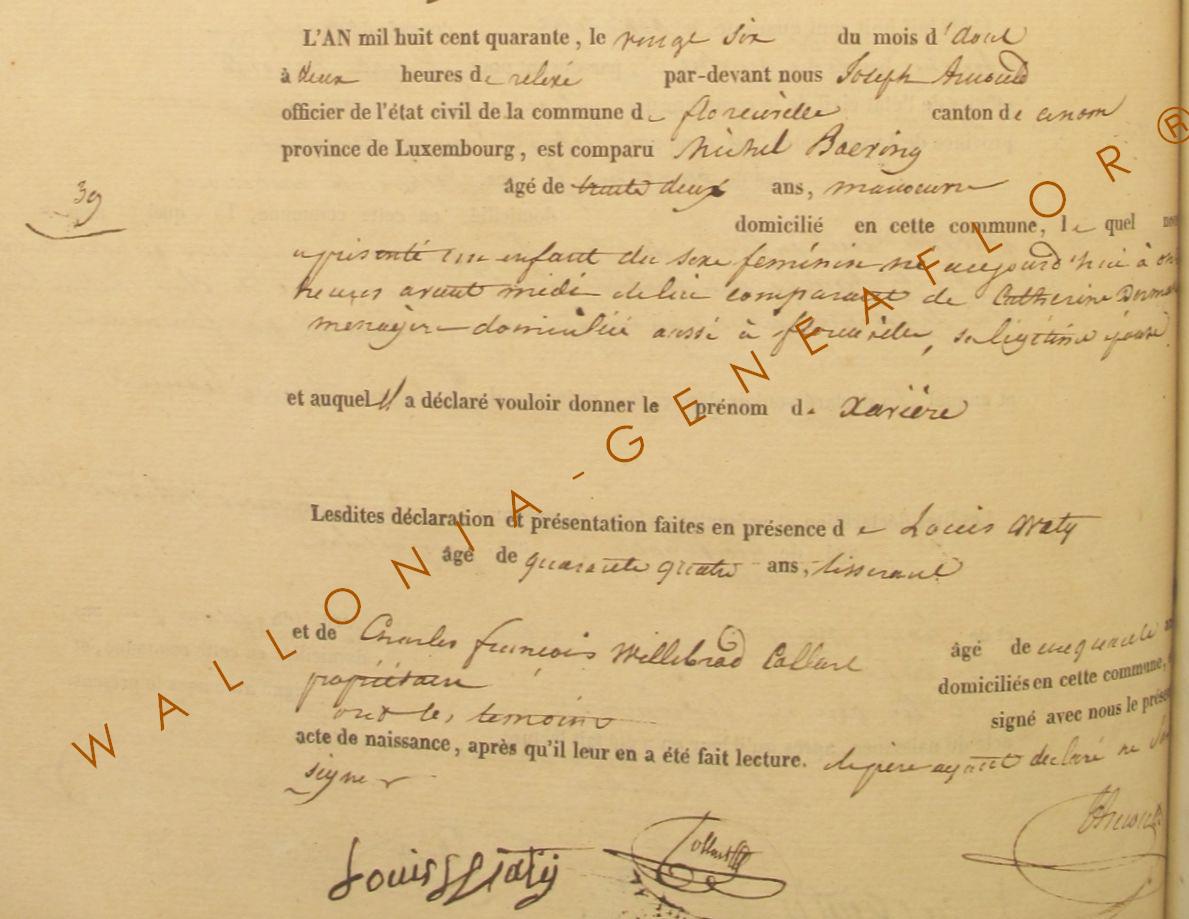 L'AN mil huit cent quarante, le vingt six du mois d'aout
à deux heures de relevé par-devant nous Joseph Arnould
officier de l'état civil de la commune de florenville canton de
province de Luxembourg, est comparu Michel Baering
39
âgé de trente deux ans, manoeuvre
domicilié en cette commune, le quel
a présenté un enfant du sexe feminin né aujourd'hui à
heures avant midi de lui comparant de Catherine
menagère domiciliée aussi à florenville, sa légitime épouse
et auquel il a déclaré vouloir donner le prénom de Xavière
Lesdites déclaration et présentation faites en présence de Louis Waty
âgé de quarante quatre ans, tisserand
et de Charles françois Willebrod Collard âgé de cinquante
propriétaire domiciliés en cette commune,
ont les temoins signé avec nous le présent
acte de naissance, après qu'il leur en a été fait lecture. le père ayant declaré ne
signer
Louis Waty Collard Arnould
WALLONIA-GENEAFLOR®